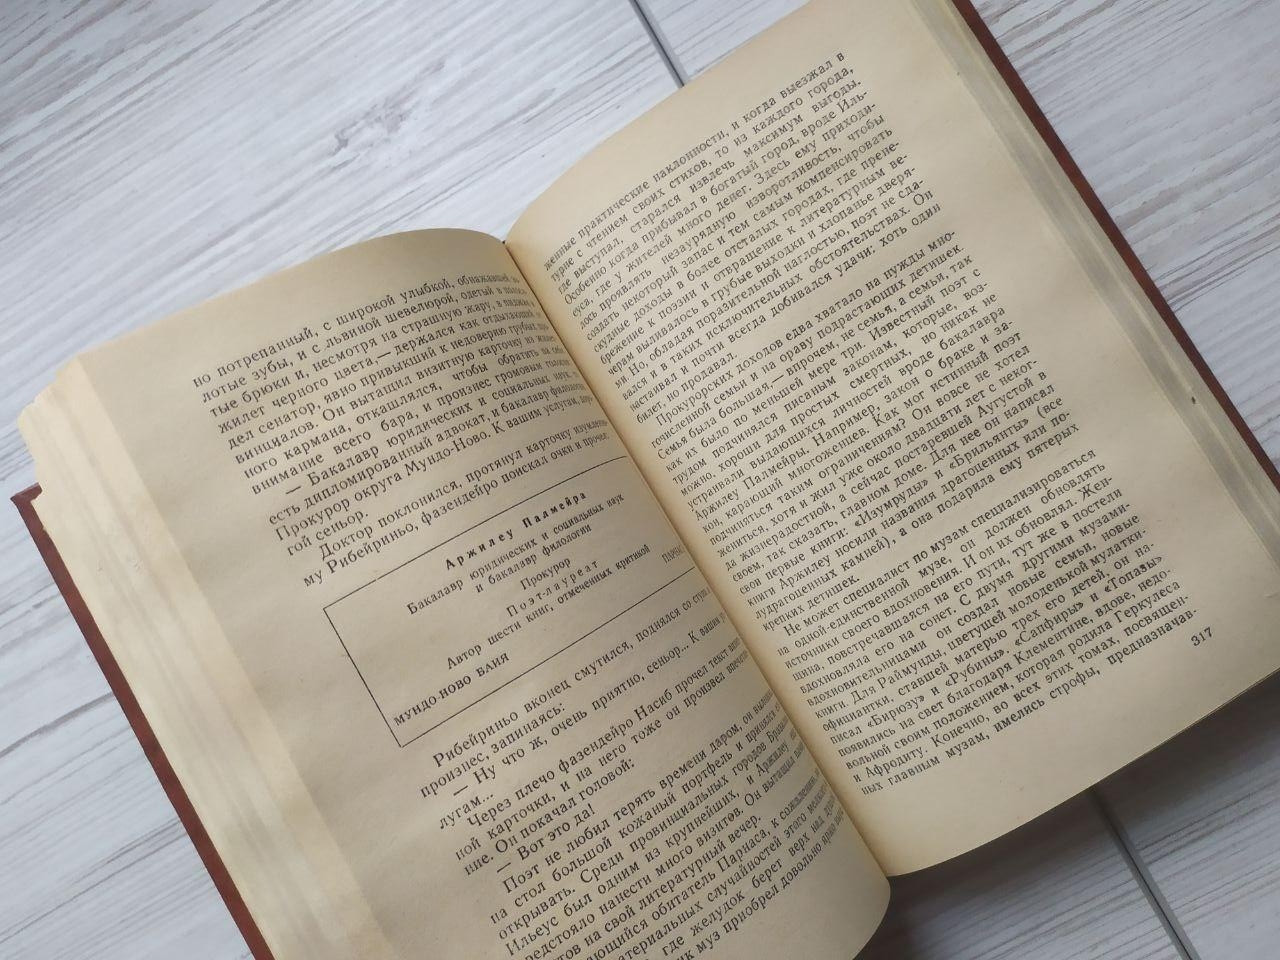 но потрепанный, с широкой улыбкой, обнажавшей
лотые зубы, и с львиной шевелюрой, одетый в
тые брюки и, несмотря на страшную жару, в пиджак и
жилет черного цвета,— держался как отдыхающий
дел сенатор, явно привыкший к недоверию грубых
винциалов. Он вытащил визитную карточку из
ного кармана, откашлялся, чтобы обратить на себя
внимание всего бара, и произнес громовым голосом:
— Бакалавр юридических и социальных наук,
есть дипломированный адвокат, и бакалавр филологии.
Прокурор округа Мундо-Ново. К вашим услугам,
гой сеньор.
Доктор поклонился, протянул карточку изумленно-
му Рибейриньо, фазендейро поискал очки и прочел:
Аржилеу Палмейра
Бакалавр юридических и социальных наук
и бакалавр филологии
Прокурор
Поэт-лауреат
Автор шести книг, отмеченных критикой
МУНДО-НОВО БАИЯ ПАРНАС
Рибейриньо вконец смутился, поднялся со
произнес, запинаясь:
— Ну что ж, очень приятно, сеньор... К вашим
лугам...
Через плечо фазендейро Насиб прочел текст
ной карточки, и на него тоже он произвел
ние. Он покачал головой:
— Вот это да!
Поэт не любил терять времени даром, он
на стол большой кожаный портфель и принялся
открывать. Среди провинциальных городов
Ильеус был одним из крупнейших, и Аржилеу
редстояло нанести много визитов. Он вытащил
тов на свой литературный вечер.
ающийся обитатель Парнаса, к сожалению,
атериальных случайностей этого
где желудок берет верх над
к муз приобрел довольно ярко
женные практические наклонности, и когда выезжал в
турне с чтением своих стихов, то из каждого города,
где выступал, старался извлечь максимум выгоды.
Особенно когда прибывал в богатый город, вроде Иль-
еуса, где у жителей много денег. Здесь ему приходи-
лось проявлять незаурядную изворотливость, чтобы
создать некоторый запас и тем самым компенсировать
скудные доходы в более отсталых городах, где прене-
брежение к поэзии и отвращение к литературным ве-
черам выливалось в грубые выходки и хлопанье дверя-
ми. Но, обладая поразительной наглостью, поэт не сда-
вался и в таких исключительных обстоятельствах. Он
настаивал и почти всегда добивался удачи: хоть один
билет, но продавал.
Прокурорских доходов едва хватало на нужды мно-
гочисленной семьи и на ораву подрастающих детишек.
Семья была большая,— впрочем, не семья, а семьи, так
как их было по меньшей мере три. Известный поэт с
трудом подчинялся писаным законам, которые, воз-
можно, хороши для простых смертных, но никак не
устраивали выдающихся личностей вроде бакалавра
Аржилеу Палмейры. Например, закон о браке и за-
кон, карающий многоженцев. Как мог истинный поэт
подчиняться таким ограничениям? Он вовсе не хотел
жениться, хотя и жил уже около двадцати лет с неког-
да жизнерадостной, а сейчас постаревшей Аугустой в
своем, так сказать, главном доме. Для нее он написал
свои первые книги: «Изумруды» и «Брильянты» (все
книги Аржилеу носили названия драгоценных или по-
лудрагоценных камней), а она подарила ему пятерых
крепких детишек.
Не может специалист по музам специализироваться
на одной-единственной музе, он должен обновлять
источники своего вдохновения. И он их обновлял. Жен-
шина, повстречавшаяся на его пути, тут же в постели
вдохновляла его на сонет. С двумя другими музами-
вдохновительницами он создал новые семьи, новые
книги. Для Раймунды, цветущей молоденькой мулатки-
официантки, ставшей матерью трех его детей, он на-
писал «Бирюзу» и «Рубины». «Сапфиры» и «Топазы»
появились на свет благодаря Клементине, вдове, недо-
вольной своим положением, которая родила Геркулеса
и Афродиту. Конечно, во всех этих томах, посвящен-
ных главным музам, имелись строфы, предназначав-
317